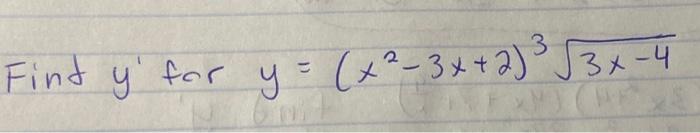 Find y' for y = (x²-3x+2)³ √(3x-4)